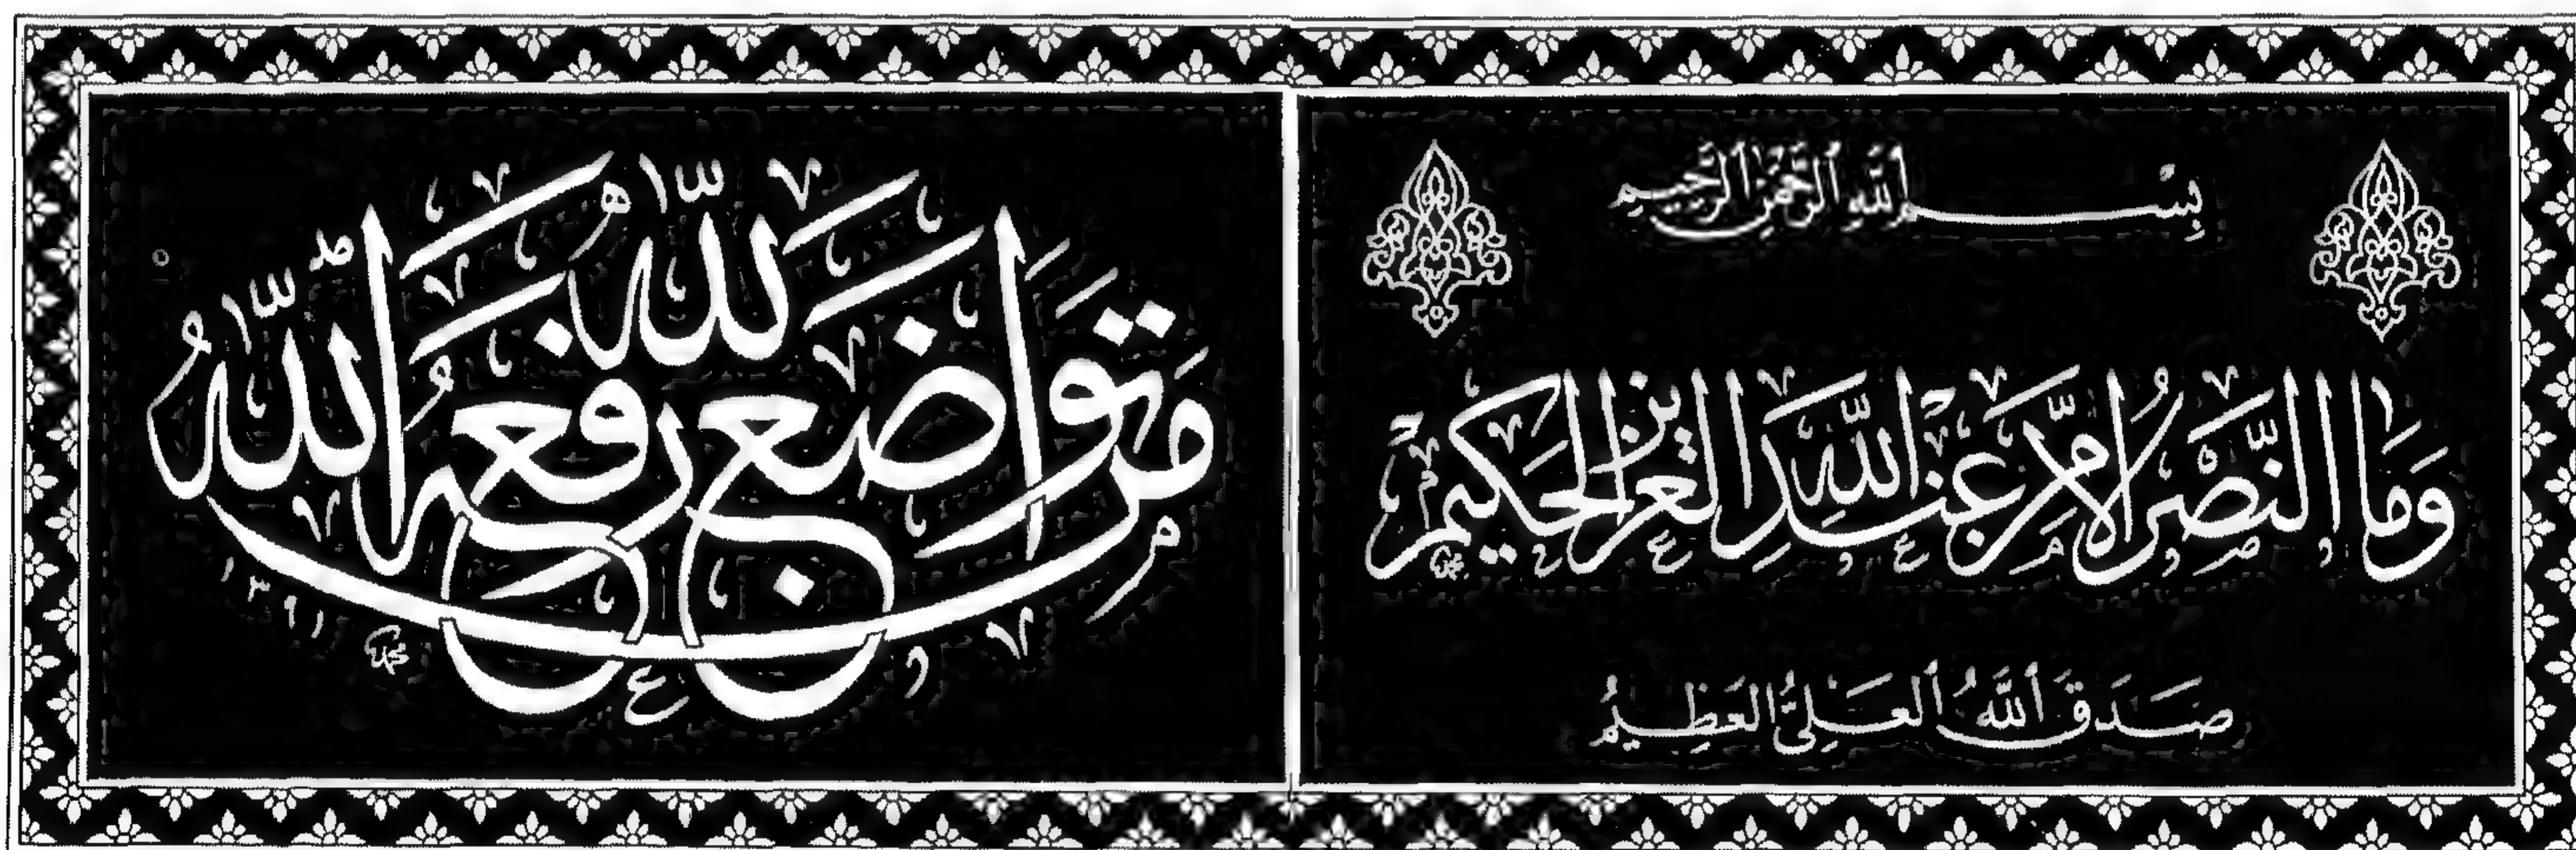 بِسْمِ ٱللَّهِ ٱلرَّحْمَٰنِ ٱلرَّحِيمِ
وَمَا النَّصْرُ إِلَّا مِنْ عِنْدِ اللَّهِ الْعَزِيزِ الْحَكِيمِ
صَدَقَ ٱللَّهُ ٱلعَلِيُّ العَظِيمُ
مَنْ تَوَاضَعَ لِلَّهِ رَفَعَهُ اللَّهُ
محمد
١٣٩١